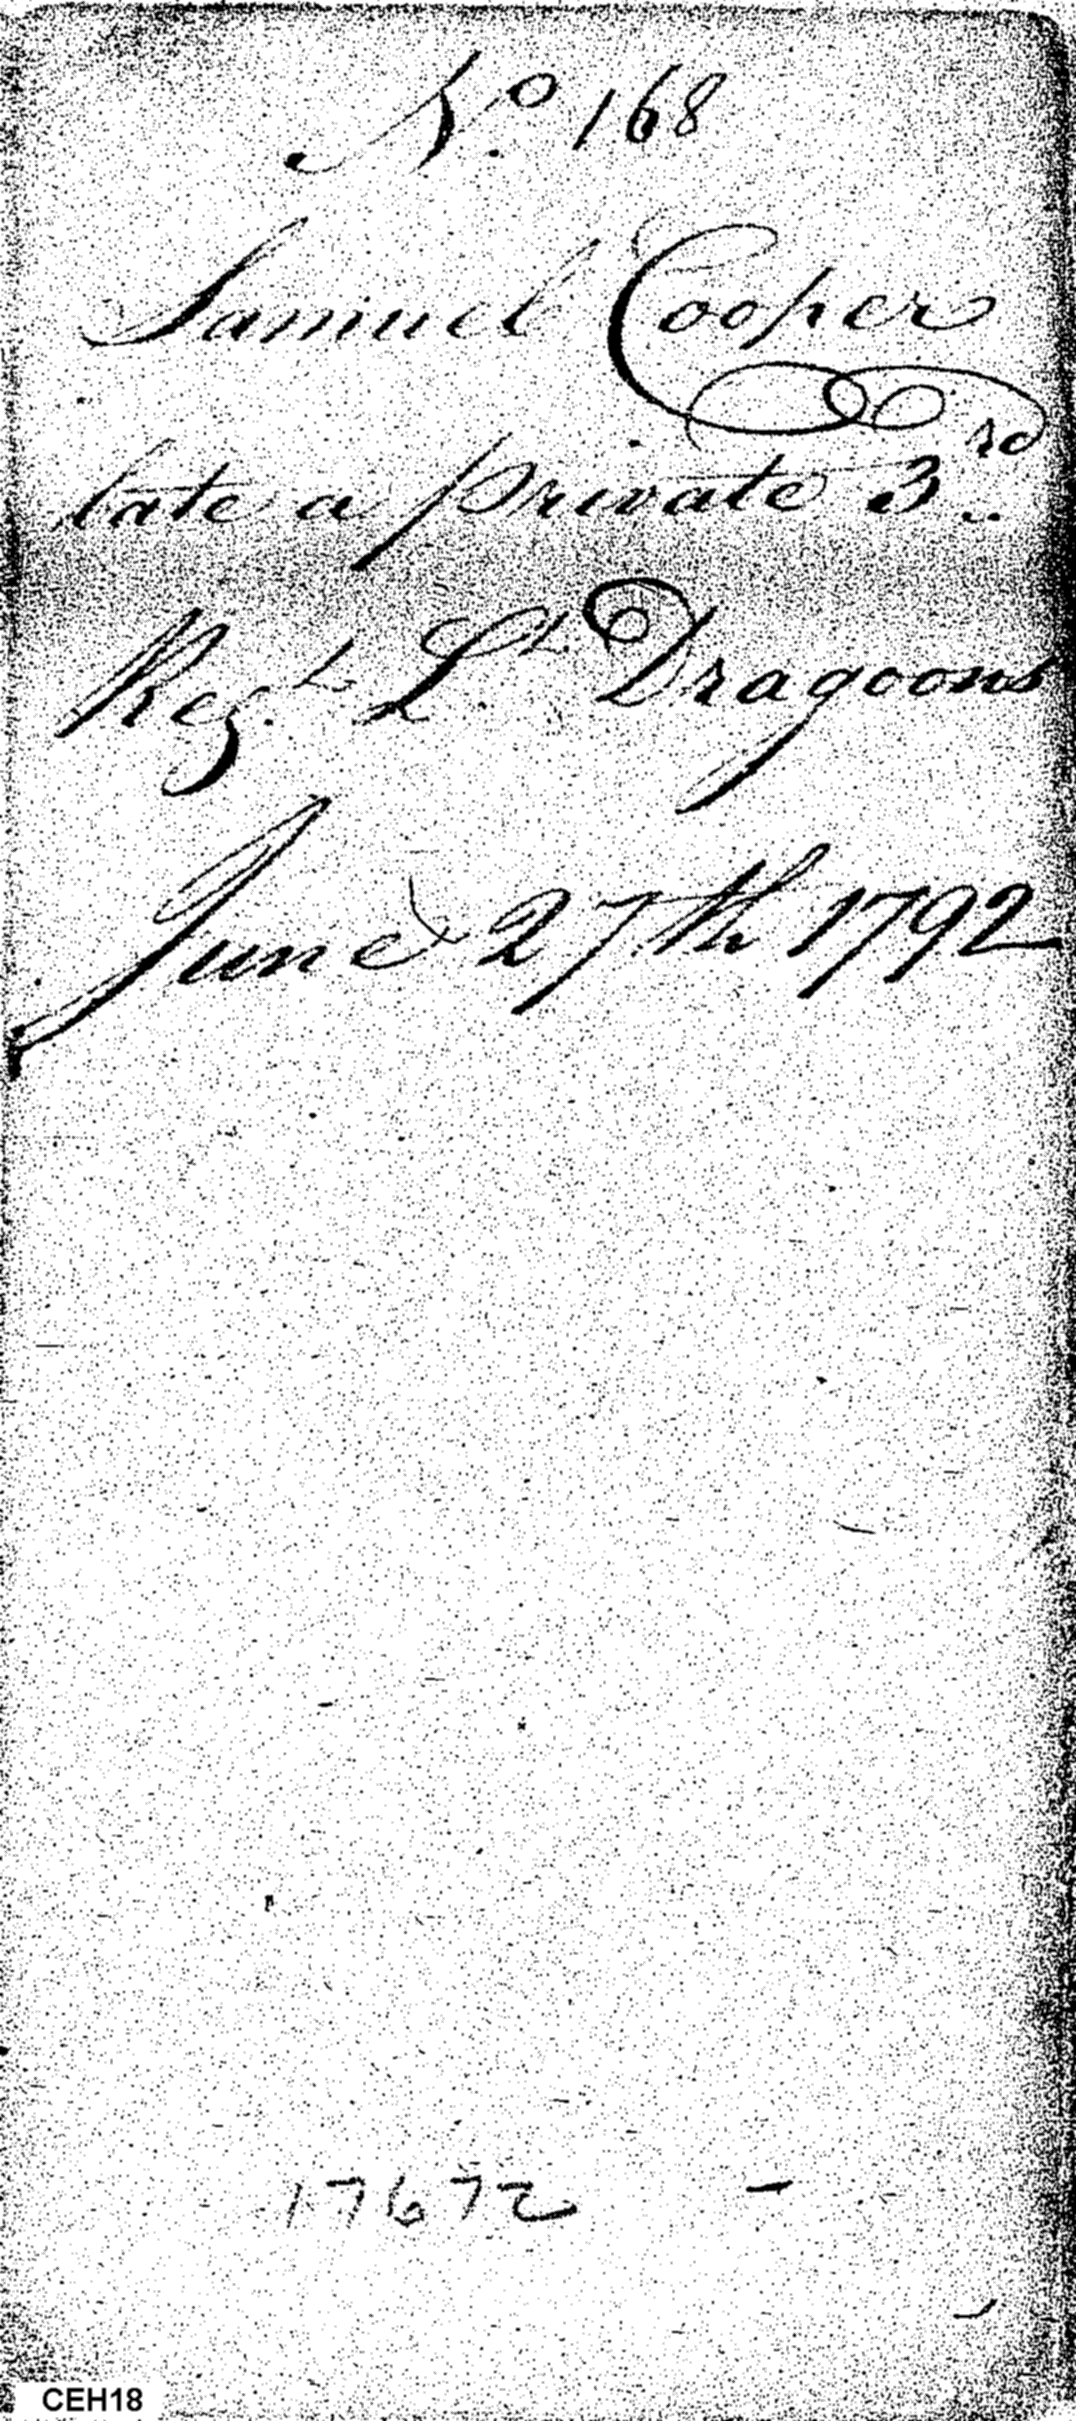 No. 168
Samuel Cooper
late a private 3rd
Regt. Lt. Dragoons
June 27th 1792
17672
CEH18